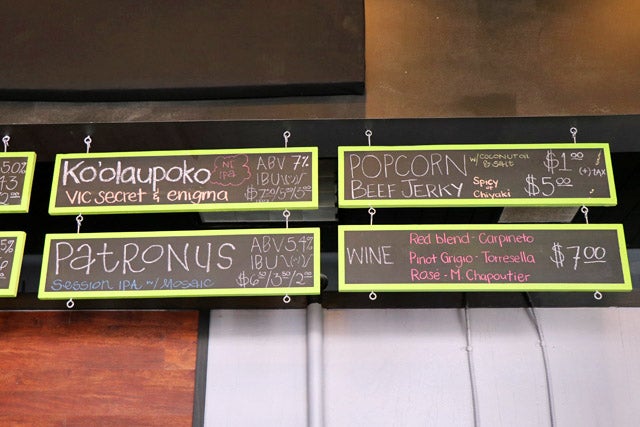 5.0%
43
2
5%
4
2
Ko'olaupoko
NE IPA
ABV 7%
VIC Secret & enigma
IBU
$7.00/5.00/3.00
PATRONUS
ABV 5.4%
IBU
Session IPA w/ MOSAIC
$6.50/3.50/2.00
POPCORN w/ COCONUT OIL & SALT $1.00 (+) TAX
BEEF JERKY Spicy & Chiyaki $5.00
WINE
Red blend - Carpineto
Pinot Grigio - Torresella
Rosé - M. Chapoutier
$7.00